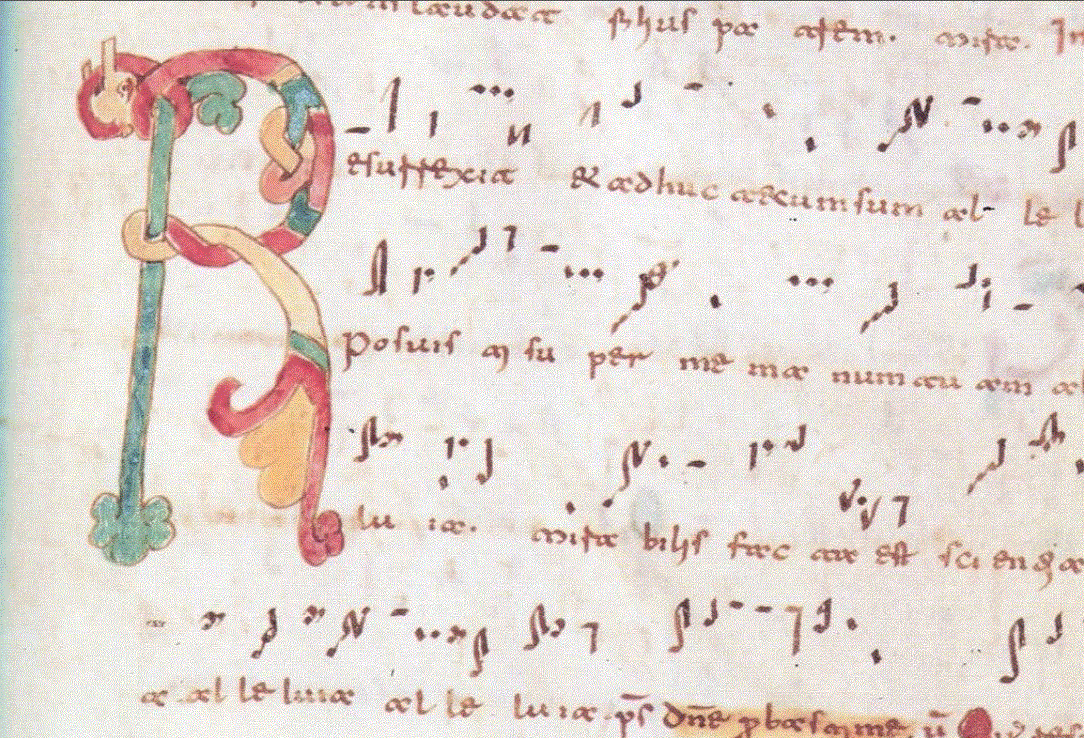 laudate
R esurrexi et adhuc tecum sum al le l
Posuis ti su per me ma num tu am al
lu ia. mira bilis fac ta est sci enti a
a al le luia al le lu ia. ps dne probasti me